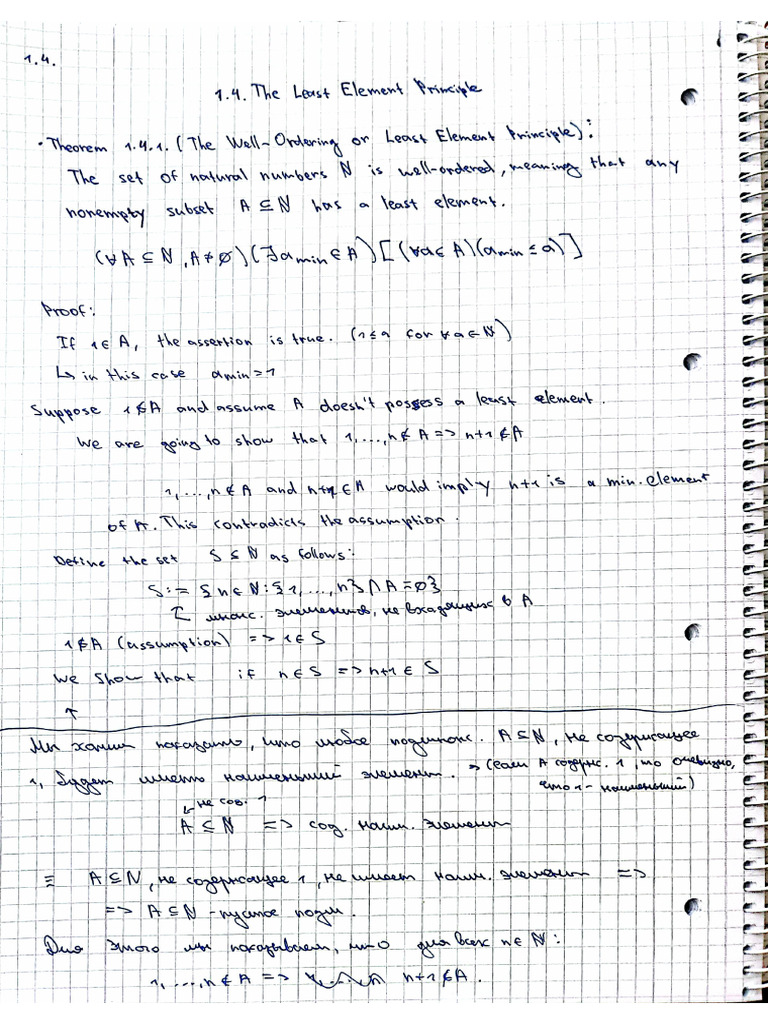 1.4.
1.4. The Least Element Principle
• Theorem 1.4.1. (The Well-Ordering or Least Element Principle):
The set of natural numbers ℕ is well-ordered, meaning that any
nonempty subset A ⊆ ℕ has a least element.
(∀A ⊆ ℕ, A ≠ ∅)(∃a_min ∈ A)[(∀a ∈ A)(a_min ≤ a)]
Proof:
If 1 ∈ A, the assertion is true. (1 ≤ a for ∀a ∈ ℕ)
↳ in this case a_min = 1
Suppose 1 ∉ A and assume A doesn't possess a least element.
We are going to show that 1,...,n ∉ A => n+1 ∉ A
1,...,n ∉ A and n+1 ∈ A would imply n+1 is a min. element
of A. This contradicts the assumption.
Define the set S ⊆ ℕ as follows:
S := {n ∈ ℕ : {1,...,n} ∩ A = ∅}
множ. элементов, не входящих в A
1 ∉ A (assumption) => 1 ∈ S
We show that if n ∈ S => n+1 ∈ S
↑
Мы хотим показать, что любое подмнож. A ⊆ ℕ, не содержащее
1, будет иметь наименьший элемент. → (если A содерж. 1, то очевидно,
что 1 - наименьший)
не сод. 1
A ⊆ ℕ => сод. наим. элемент
≡ A ⊆ ℕ, не содержащее 1, не имеет наим. элемент =>
=> A ⊆ ℕ - пустое подм.
Для этого мы показываем, что для всех n ∈ ℕ:
1,...,n ∉ A => n+1 ∉ A.